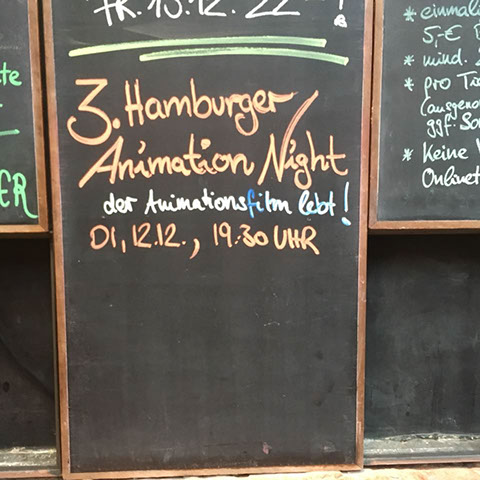 FR. 15.12. 22
3. Hamburger
Animation Night
der Animationsfilm lebt!
DI, 12.12., 19.30 UHR
ER
* einmali
5,-€
* mind.
* pro
ggf. So
* Keine
Onlinet